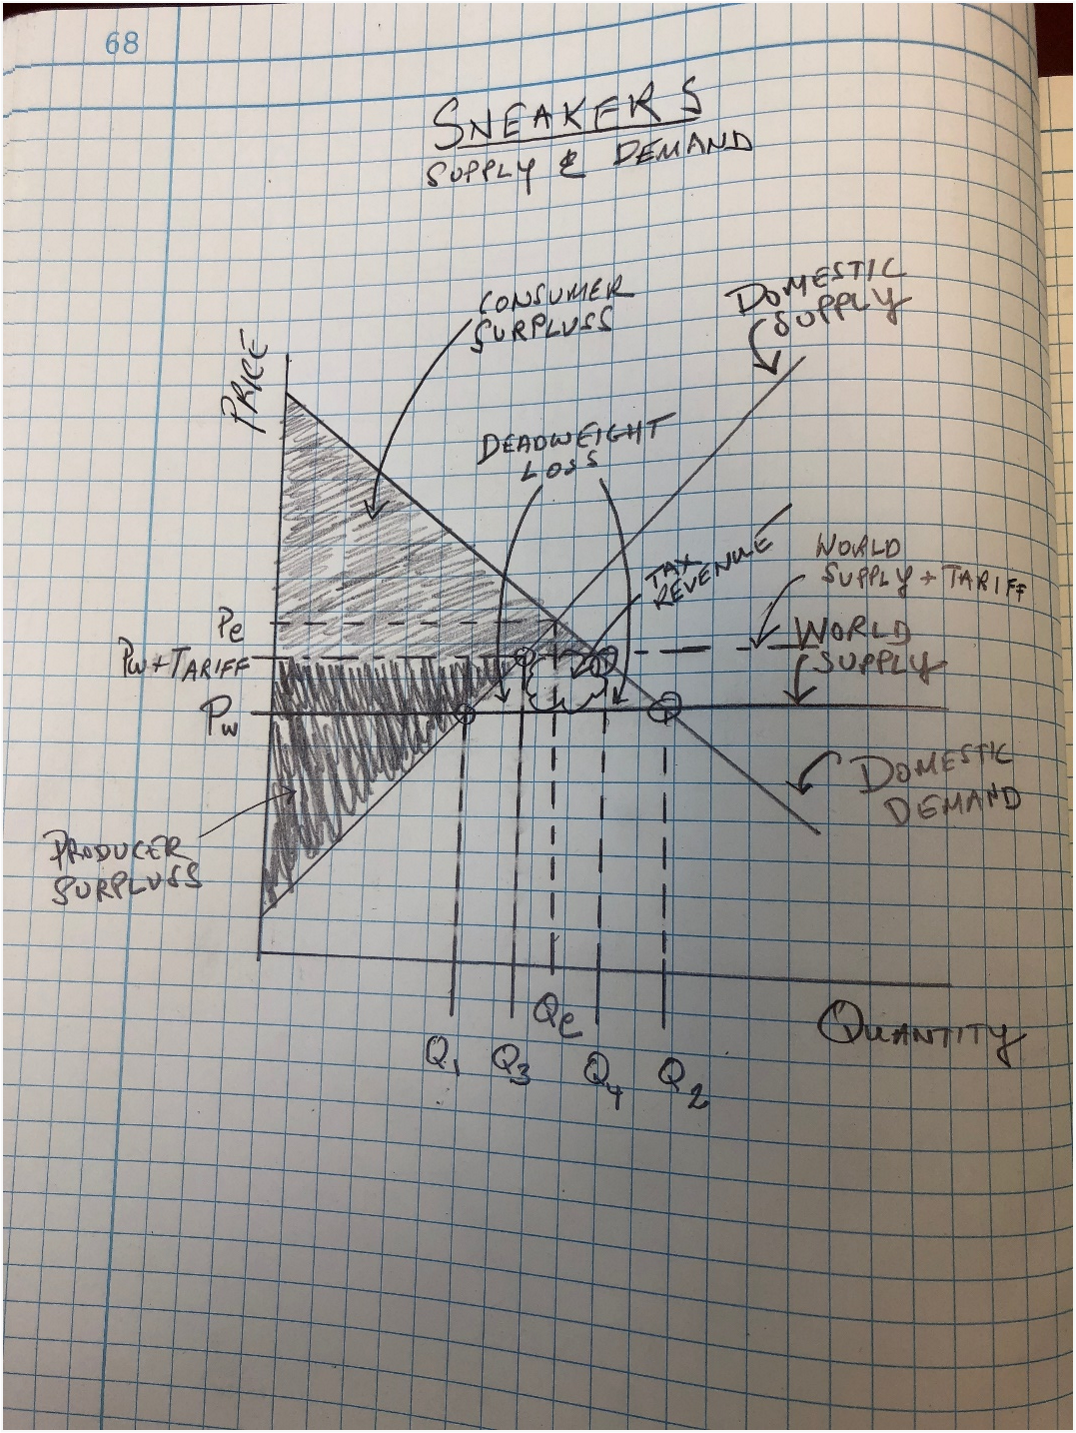 68
SNEAKERS
SUPPLY & DEMAND
CONSUMER
SURPLUSS
DOMESTIC
SUPPLY
PRICE
DEADWEIGHT
LOSS
TAX
REVENUE
WORLD
SUPPLY + TARIFF
Pe
WORLD
SUPPLY
Pw + TARIFF
Pw
DOMESTIC
DEMAND
PRODUCER
SURPLUSS
Qe
QUANTITY
Q1 Q3 Q4 Q2